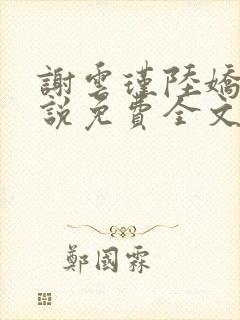 謝雲瑾陸嬌
說免費全文
鄭國霖